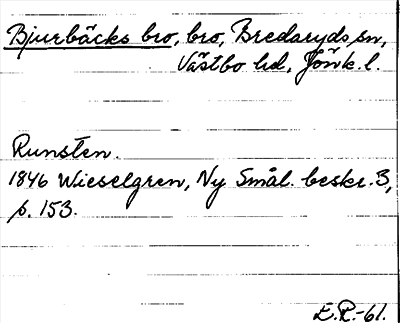 Bjurbäcks bro, bro, Bredaryds sn,
Västbo hd, Jönk. l.
Runsten.
1846 Wieselgren, Ny Smål. beskr. 3,
p. 153.
E.R.-61.